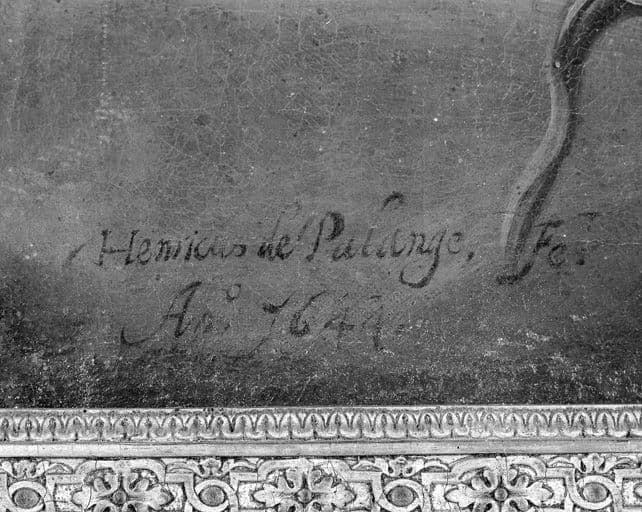 Henricus de Palange, Fe:
An.º 1644.